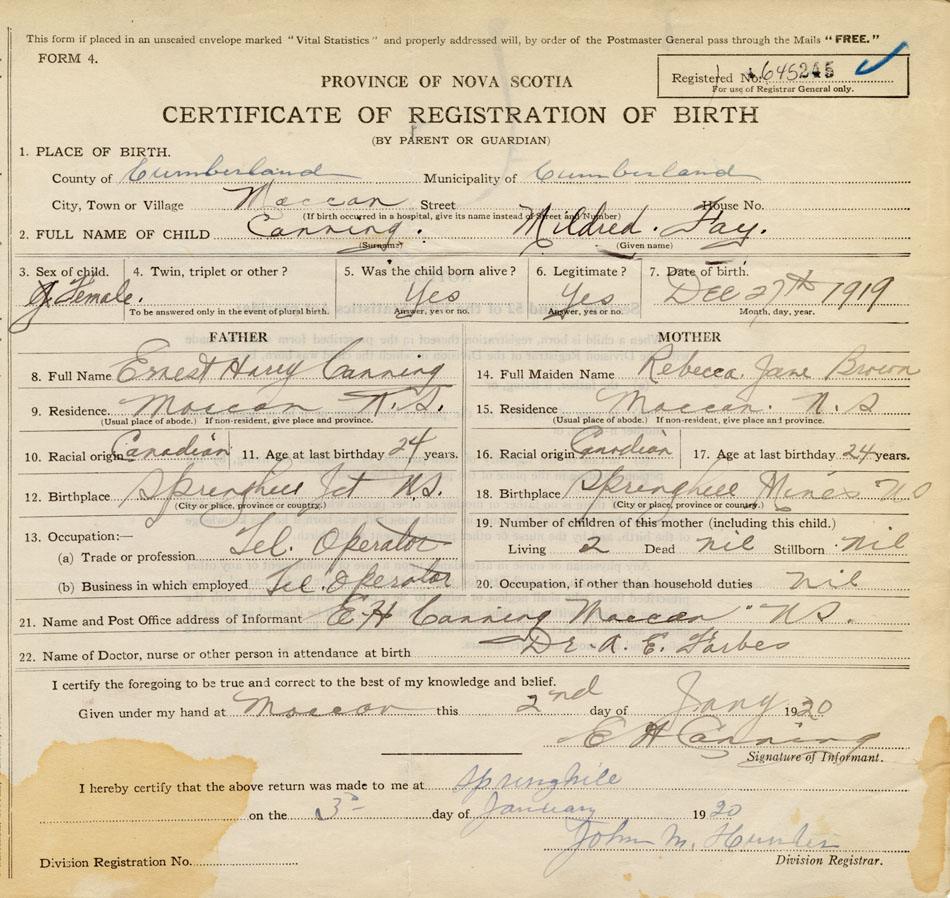 This form if placed in an unsealed envelope marked "Vital Statistics" and properly addressed will, by order of the Postmaster General pass through the Mails "FREE."
FORM 4.
Registered No. 645245
For use of Registrar General only.
PROVINCE OF NOVA SCOTIA
CERTIFICATE OF REGISTRATION OF BIRTH
(BY PARENT OR GUARDIAN)
1. PLACE OF BIRTH.
County of Cumberland Municipality of Cumberland
City, Town or Village Maccan Street House No.
(If birth occurred in a hospital, give its name instead of Street and Number)
2. FULL NAME OF CHILD Canning. Mildred. Fay.
(Surname) (Given name)
3. Sex of child. 4. Twin, triplet or other? 5. Was the child born alive? 6. Legitimate? 7. Date of birth.
Female. Yes Yes Dec 27th 1919
To be answered only in the event of plural birth. Answer, yes or no. Answer, yes or no. Month, day, year.
FATHER MOTHER
8. Full Name Ernest Harry Canning 14. Full Maiden Name Rebecca Jane Brown
9. Residence. Maccan N.S. 15. Residence Maccan. N.S
(Usual place of abode.) If non-resident, give place and province. (Usual place of abode.) If non-resident, give place and province.
10. Racial origin Canadian 11. Age at last birthday 24 years. 16. Racial origin Canadian 17. Age at last birthday 24 years.
12. Birthplace Springhill Jct NS. 18. Birthplace Springhill Mines
(City or place, province or country.) (City or place, province or country.)
13. Occupation:— 19. Number of children of this mother (including this child.)
(a) Trade or profession Tel. Operator Living 2 Dead nil Stillborn nil
(b) Business in which employed Tel. Operator 20. Occupation, if other than household duties nil
21. Name and Post Office address of Informant E H Canning Maccan " NS.
22. Name of Doctor, nurse or other person in attendance at birth Dr. A. E. Forbes
I certify the foregoing to be true and correct to the best of my knowledge and belief.
Given under my hand at Maccan this 2nd day of Jany 1920
E H Canning
Signature of Informant.
I hereby certify that the above return was made to me at Springhill
on the 3rd day of January 1920
John M. Hunter
Division Registration No. Division Registrar.